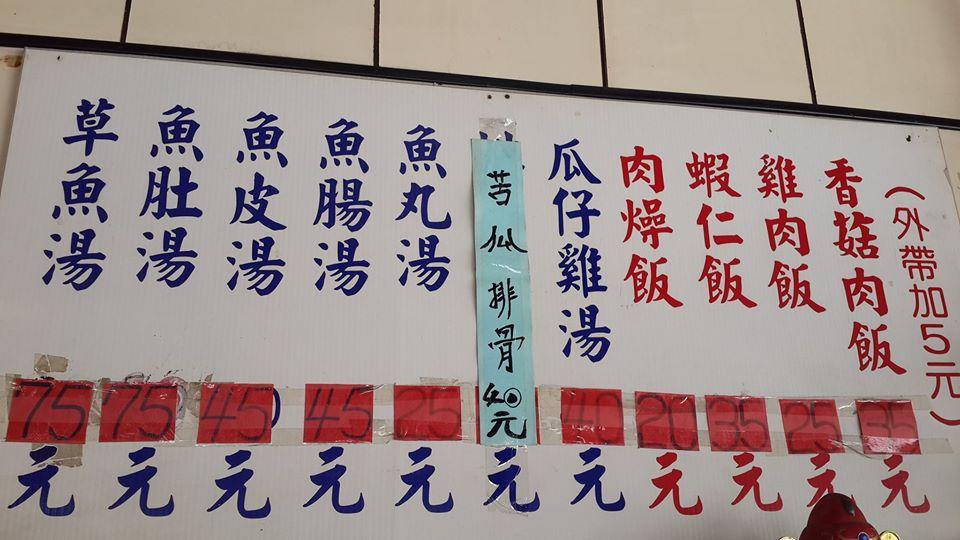 (外帶加5元)
香菇肉飯 35元
雞肉飯 25元
蝦仁飯 35元
肉燥飯 20元
瓜仔雞湯 40元
苦瓜排骨 40元
元
魚丸湯 25元
魚腸湯 45元
魚皮湯 45元
魚肚湯 75元
草魚湯 75元